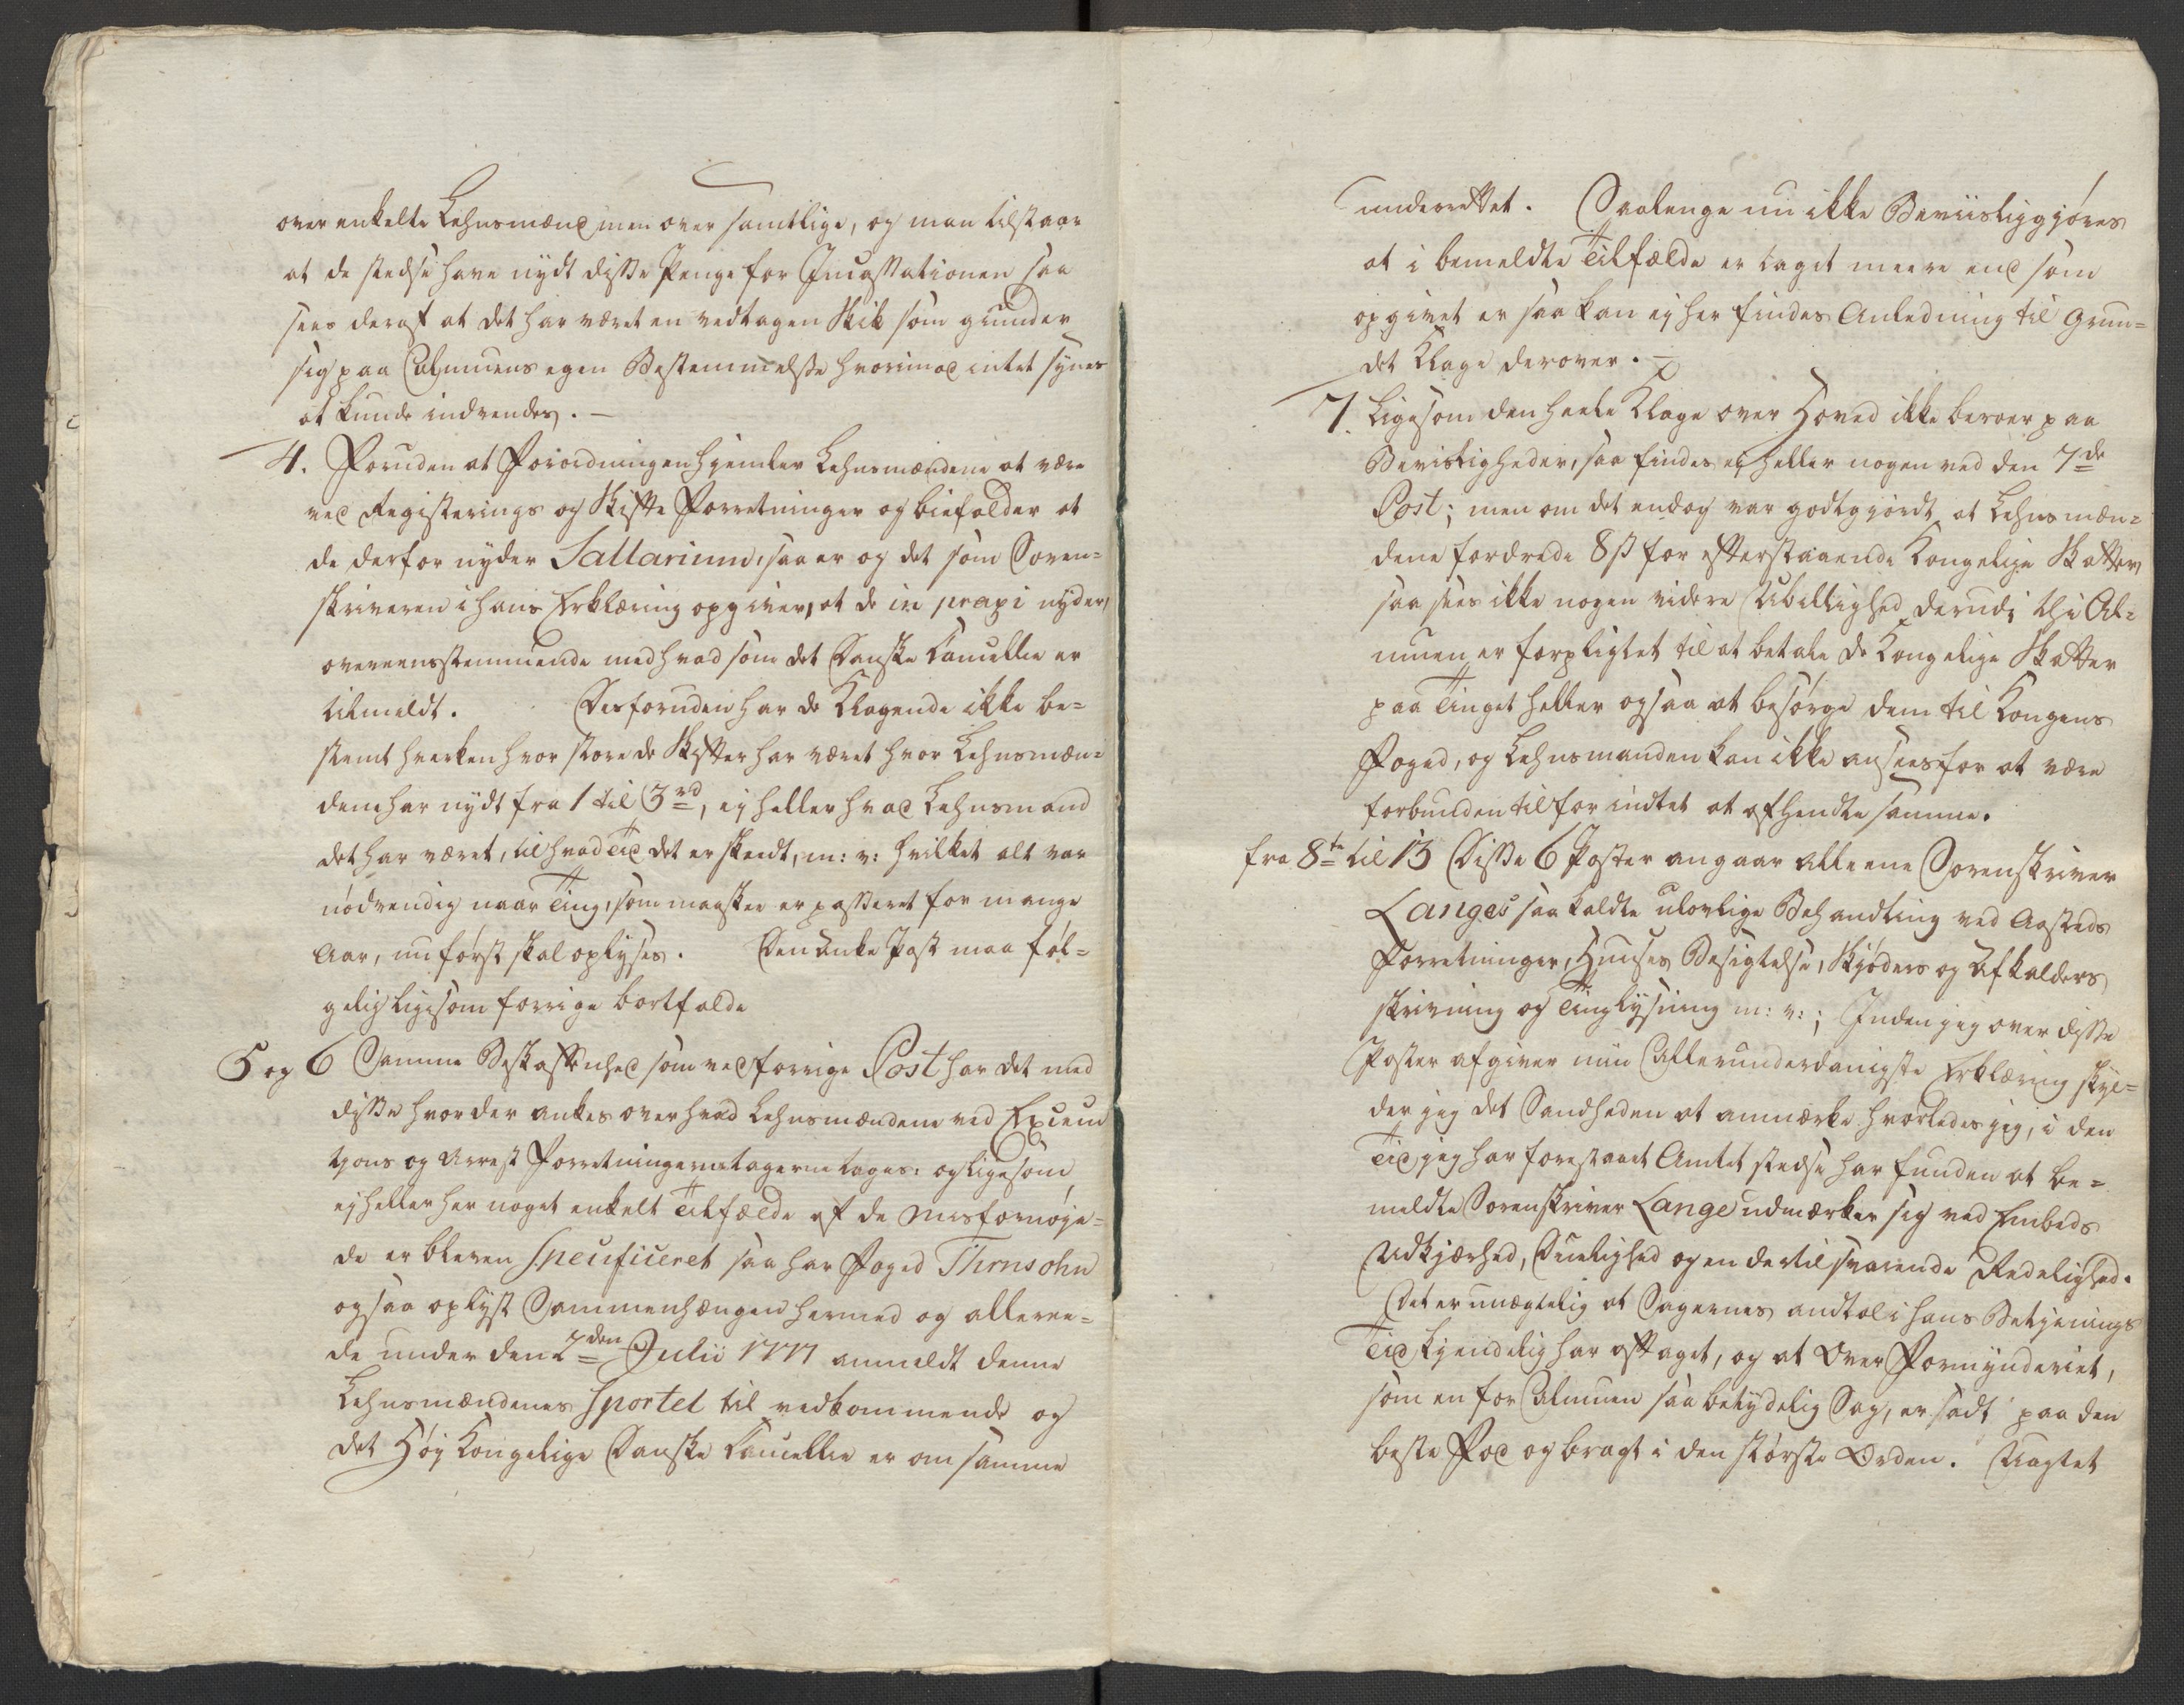 over enkelte Lehnsmænd men over samtlige, og man tilstaar
at de stedse have nydt disse Penge for Incassationen saa
sees deraf at det har været en vedtagen Skik som grunder
sig paa Almuens egen Bestemmelse hvorimod intet synes
at kunde indvendes. —
4. Foruden at Forordningen hjemler Lehnsmændene at være
ved Registerings og Skifte Forretninger og biefalder at
de derfor nyder Sallarium, saa er og det som Soren=
skriveren i hans Erklæring opgiver, at de in praxi nyder,
overeensstemmende med hvad som det Danske Cancellie er
tilmeldt. Desforuden har de Klagende ikke be=
stemt hverken hvor store de Skifter har været hvor Lehnsmæn=
dene har nydt fra 1 til 3 rd, ej heller hvad Lehnsmand
det har været, til hvad Tid det er skeedt, m: v: hvilket alt var
nödvendig naar Ting, som maaskee er passeret for mange
Aar, nu först skal oplyses. Den Anke Post maa föl=
gelig ligesom forrige bortfalde
5 og 6 Samme Beskaffenhed som ved forrige Post har det med
disse hvor der ankes over hvad Lehnsmændene ved Execu
tions og Arrest Forretningerne tages: og ligesom
ej heller her noget enkelt Tilfælde af de Misfornöje=
de er bleven Specificeret saa har Foged Thrnsohn
ogsaa oplyst Sammenhængen hermed og alleree=
de under den 2den Julii 1777 anmeldt denne
Lehnsmændenes Sportel til vedkommende og
det Höy Kongelige Danske Cancellie er om samme
underrettet. Saalenge nu ikke Beviisliggjöres
at i bemeldte Tilfælde er taget meere end som
opgivet er saa kan ej her findes Anledning til grun=
det Klage derover. —
7. Ligesom den heele Klage over Hoved ikke beroer paa
Bevisligheder, saa findes ej heller nogen ved den 7de
Post; men om det endog var godtgjordt at Lehnsmæn=
dene fordrede 8 s for efterstaaende Kongelige Skatter,
saa sees ikke nogen videre Ubillighed derudi thi Al=
muen er forpligtet til at betale de Kongelige Skatter
paa Tinget heller ogsaa at besörge dem til Kongens
Foged, og Lehnsmanden kan ikke ansees for at være
forbunden til for indtet at afhendte samme.
fra 8te til 13 Disse 6 Poster angaar alleene Sorenskriver
Langes saa kaldte ulovlige Behandling ved Aasteds
Forretninger, Huuses Besigtelse, Skjöders og Afkalders
skrivning og Tinglysning m: v:; Inden jeg over disse
Poster afgiver min Allerunderdanigste Erklæring skyl=
der jeg det Sandheden at anmærke hvorledes jeg, i den
Tid jeg har forestaaet Amtet stedse har funden at be=
meldte Sorenskriver Lange udmærker sig ved Embeds
Udkjærhed, Duelighed og en dertil svarende Redelighed.
Det er unægtelig at Sagernes andtal i hans Betjenings
Tid kjendelig har aftaget, og at Over Formynderiet,
som en for Almuen saa betydelig Sag, er sadt paa den
beste Fod og bragt i den störste Orden. Uagtet